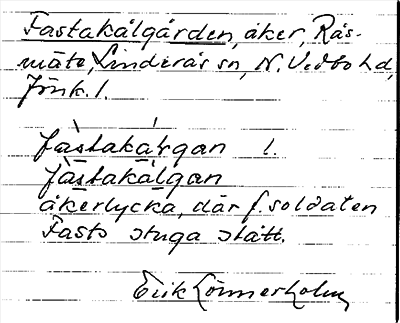 Fastakålgården, åker, Rås-
måla, Linderås sn, N. Vedbo hd,
Jönk. l.
Fàstaká̊rgan l.
Fàstakå̀lgan
åkerlycka, där f. soldaten
Fasts stuga stått.
Erik Lönnerholm